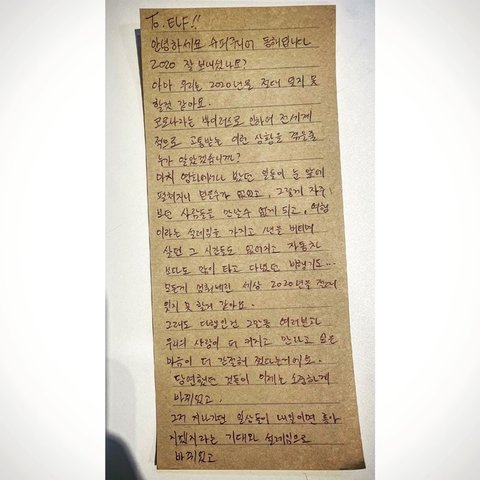 To. ELF!!
안녕하세요 슈퍼주니어 동해입니다
2020 잘 보내셨나요?
아마 우리는 2020년을 절대 잊지 못
할것 같아요.
코로나라는 바이러스로 인하여 전세계
적으로 고통받는 이런 상황을 겪을줄
누가 알았겠습니까?
마치 영화에서나 봤던 일들이 눈 앞에
펼쳐지니 믿을수가 없었고, 그렇게 자주
보던 사람들을 만날수 없게 되고, 여행
이라는 설레임을 가지고 1년을 버티며
살던 그 시간들도 없어지고 자동차
보다도 많이 타고 다녔던 비행기도...
모든게 멈춰버린 세상 2020년을 절대
잊지 못 할거 같아요.
그래도 다행인건 그만큼 여러분과
우리의 사랑이 더 커지고 만나고 싶은
마음이 더 간절해 졌다는거에요.
당연했던 것들이 이제는 소중하게
바뀌었고,
그저 지나가던 일상들이 내일이면 좋아
지겠지라는 기대와 설레임으로
바뀌었고